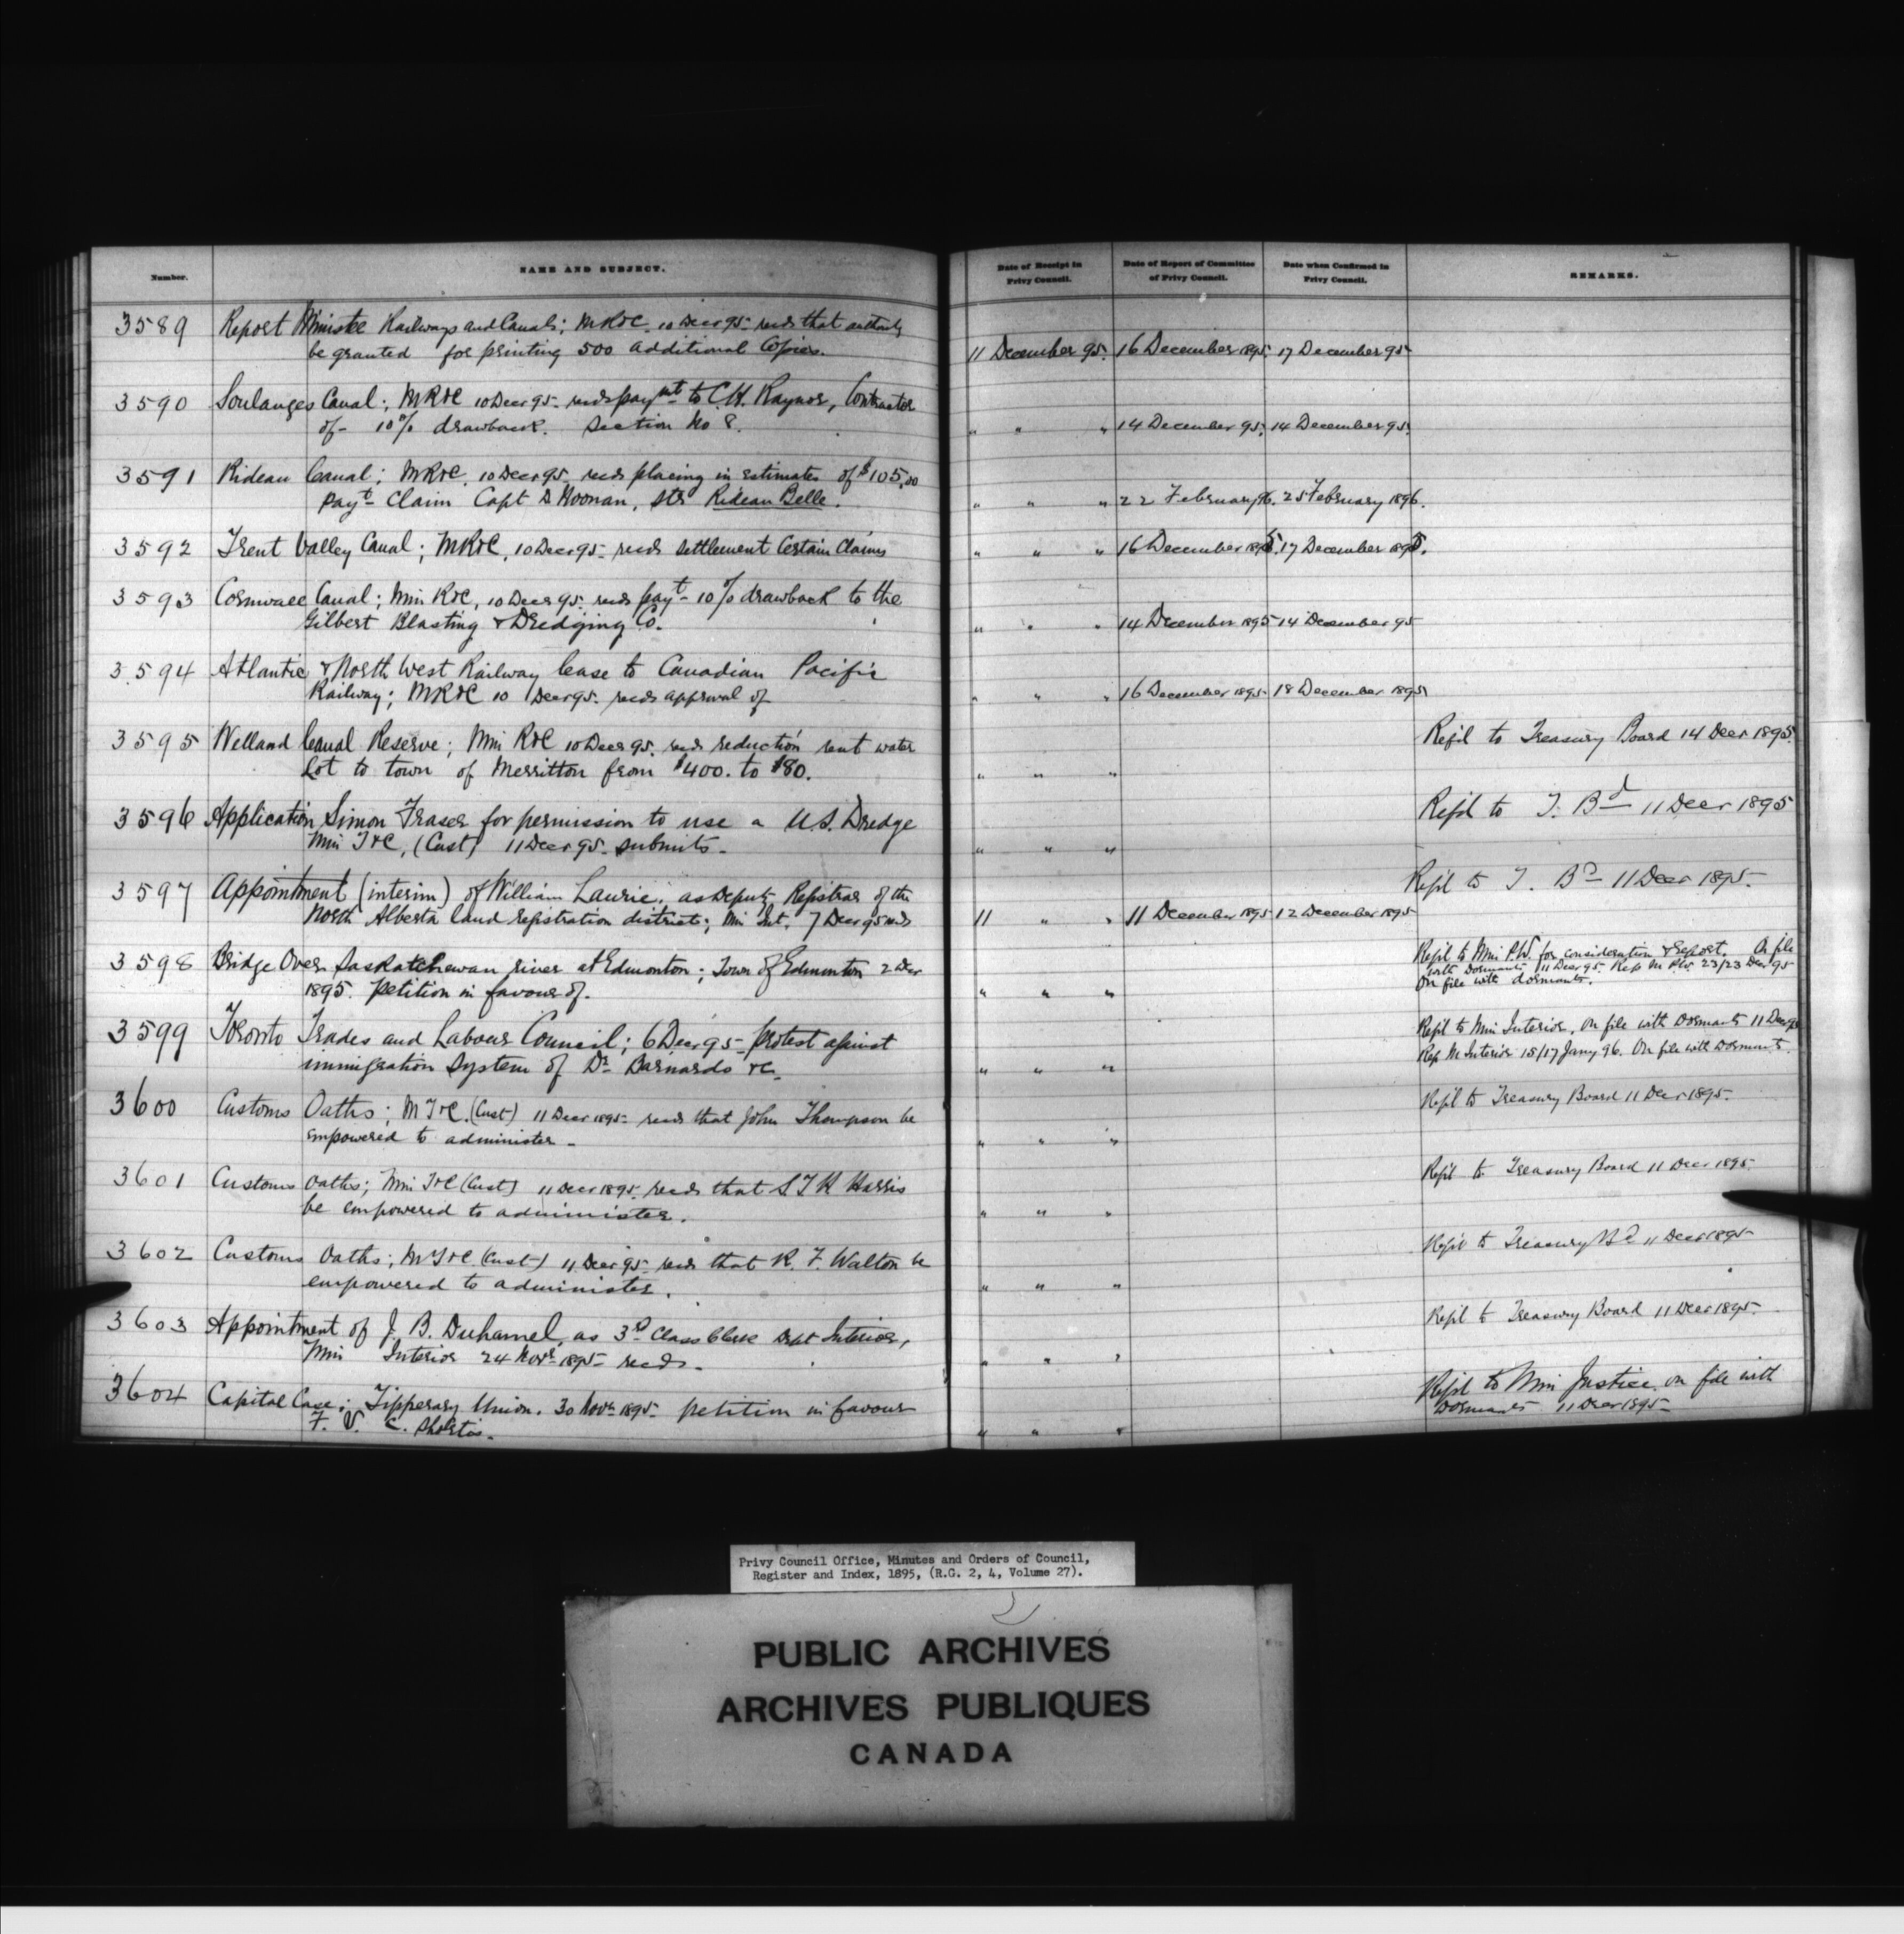 Number. NAME AND SUBJECT. Date of Receipt in Privy Council. Date of Report of Committee of Privy Council. Date when Confirmed in Privy Council. REMARKS.
3589 Report Ministe Railways and Canals; MR&C. 10 Decr 95 recds that authority
be granted for printing 500 additional Copies. 11 December 95. 16 December 1895. 17 December 95
3590 Soulanges Canal; MR&C 10 Decr 95 recds paymt to C.H. Raynor, Contractor
of 10% drawback. Section No 8. " " " 14 December 95. 14 December 95.
3591 Rideau Canal; MR&C. 10 Decr 95 recds placing in estimates of $105.00
payt Claim Capt D Noonan, Str Rideau Belle. " " " 22 February 96. 25 February 1896.
3592 Trent Valley Canal; MR&C, 10 Decr 95 recds settlement Certain Claims " " " 16 December 1895. 17 December 1895.
3593 Cornwall Canal; Min R&C, 10 Decr 95 recds payt 10% drawback to the
Gilbert Blasting & Dredging Co. " " " 14 December 1895 14 December 95
3594 Atlantic & North West Railway lease to Canadian Pacific
Railway; MR&C 10 Decr 95. recds approval of " " " 16 December 1895. 18 December 1895
3595 Welland Canal Reserve; Min R&C 10 Decr 95. recds reduction rent water Refd to Treasury Board 14 Decr 1895.
Lot to town of Merritton from $400. to $80. " " "
3596 Application Simon Fraser for permission to use a U.S. Dredge Refd to T. Bd 11 Decr 1895
Min T&C, (Cust) 11 Decr 95 submits. " " "
3597 Appointment (interim) of William Laurie, as Deputy Registrar of the Refd to T. Bd 11 Decr 1895.
North Alberta land registration district; Min Int. 7 Decr 95 recds 11 " " 11 December 1895 12 December 1895
3598 Bridge Over Saskatchewan river at Edmonton; Town of Edmonton 2 Decr Refd to Min P.W. for consideration & report. On file
with Dormants 11 Decr 95. Rep M P.W. 23/23 Decr 95
1895. Petition in favour of. " " " On file with dormants.
3599 Toronto Trades and Labour Council; 6 Decr 95 protest against Refd to Min Interior, on file with Dormants 11 Decr 95
immigration System of Dr Barnardo &c. " " " Rep M Interior 15/17 Jany 96. On file with Dormants.
3600 Customs Oaths; M T&C. (Cust) 11 Decr 1895 recds that John Thompson be Refd to Treasury Board 11 Decr 1895.
empowered to administer. " " "
3601 Customs Oaths; Min T&C (Cust) 11 Decr 1895. recds that S T H Harris Refd to Treasury Board 11 Decr 1895
be empowered to administer. " " "
3602 Customs Oaths; M T&C (Cust) 11 Decr 95 recds that R. F. Walton be Refd to Treasury Bd 11 Decr 1895
empowered to administer. " " "
3603 Appointment of J. B. Duhamel, as 3d Class Clerk Dept Interior, Refd to Treasury Board 11 Decr 1895.
Min Interior 24 Novr 1895 recds. " " "
3604 Capital Case; Tipperary Union. 30 Novr 1895 petition in favour Refd to Min Justice. on file with
Dormants 11 Decr 1895
F. V. C. Shortis. " " "
Privy Council Office, Minutes and Orders of Council,
Register and Index, 1895, (R.G. 2, 4, Volume 27).
PUBLIC ARCHIVES
ARCHIVES PUBLIQUES
CANADA